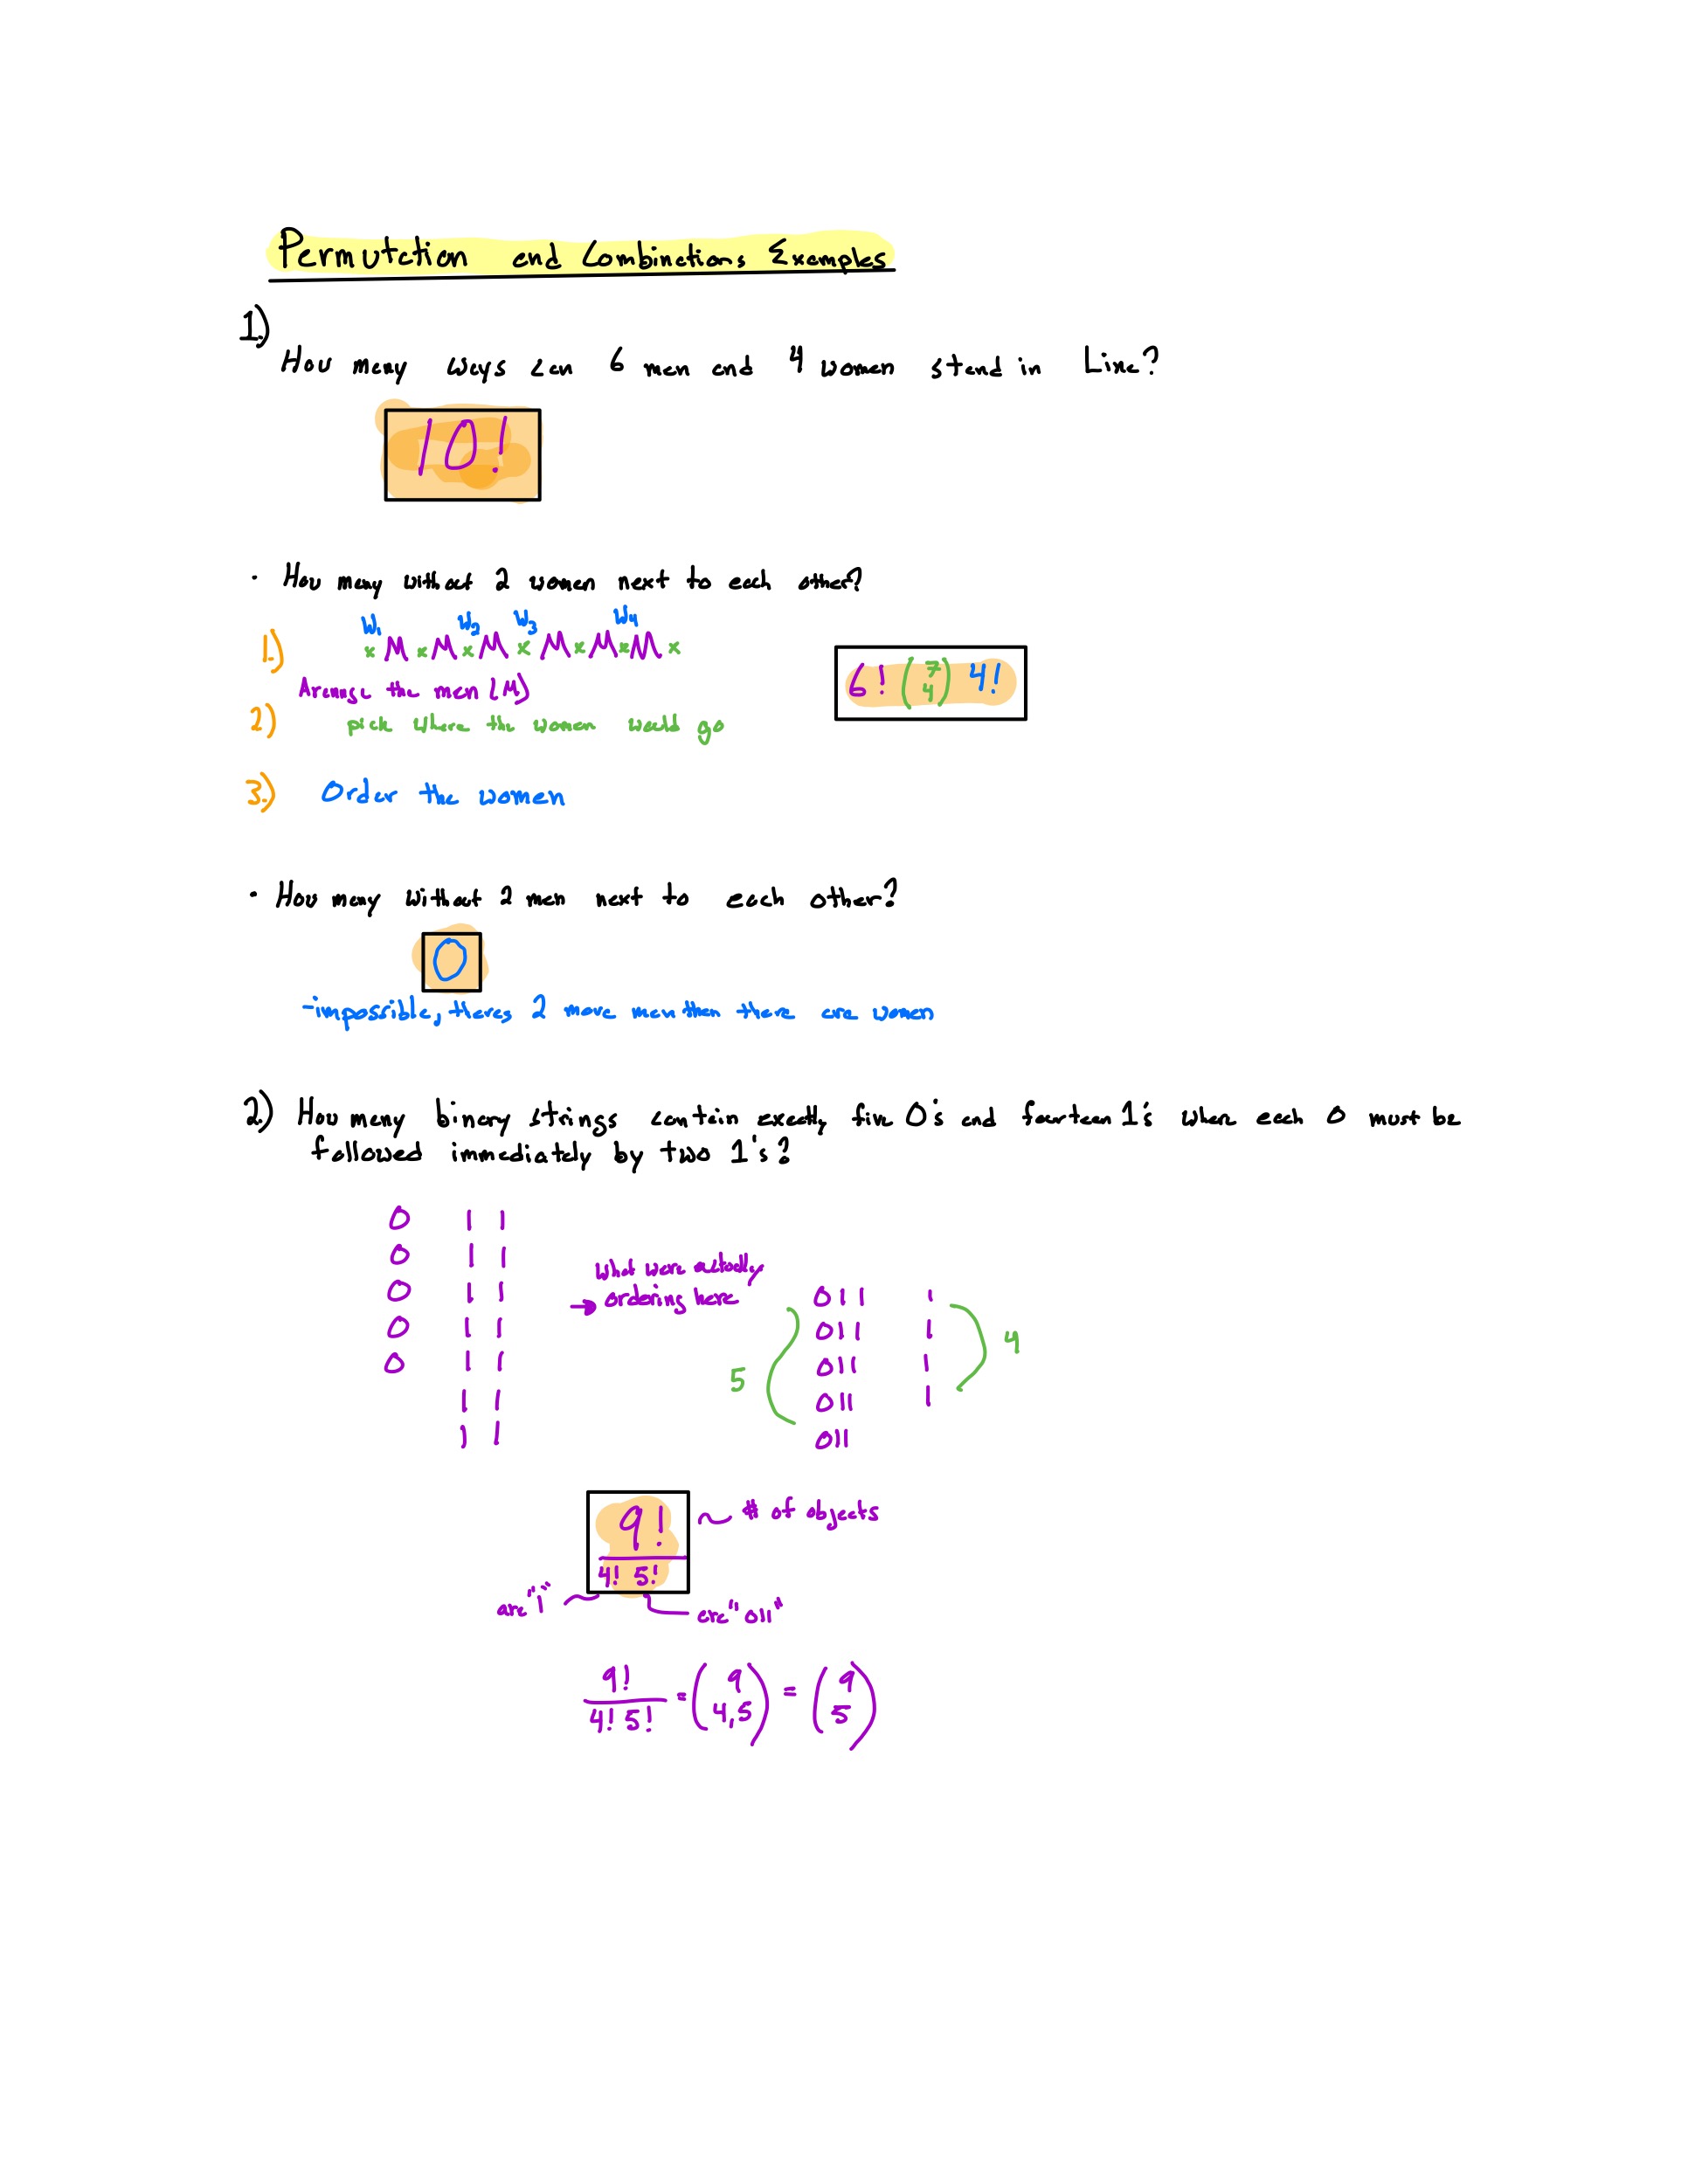 Permutation and Combinations Examples
1.)
How many ways can 6 men and 4 women stand in Line?
10!
· How many without 2 women next to each other?
W1 W2 W3 W4
1.) x M x M x M x M x M x M x
6! (7 4) 4!
Arange the men (M)
2) pick where the women would go
3.) Order the women
· How many without 2 men next to each other?
0
-impossible, theres 2 more men then there are women
2.) How many binary strings contain exactly five 0's and fourteen 1's when each 0 must be
followed immediately by two 1's?
0 1 1
0 1 1
0 1 1
0 1 1
0 1 1
1 1
1 1
What were actually
→ ordering here
5
011 1
011 1
011 1
011 1
011
4
9!
4! 5!
~ # of objects
are "1"
are "011"
9!/4! 5! = (9 4,5) = (9 5)